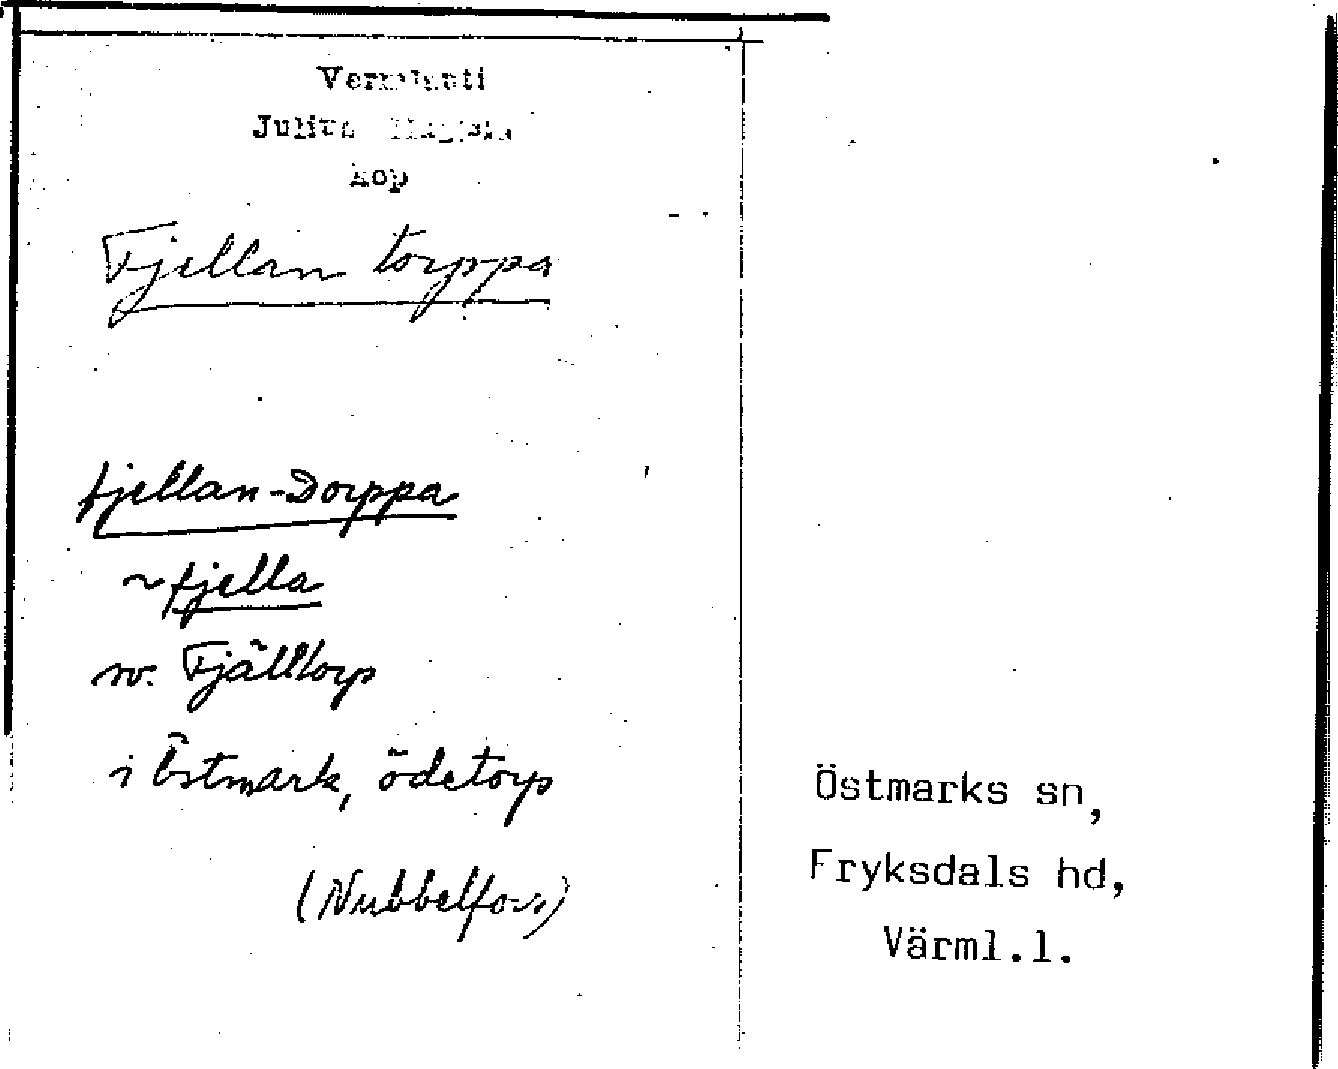 Vermlanti
Julius Mägiste
kop
Fjellan torppa
fjellan-Dorppa
~ fjella
sv. Fjälltorp
i Östmark, ödetorp
(Nubbelfors)
Östmarks sn,
Fryksdals hd,
Värml.l.